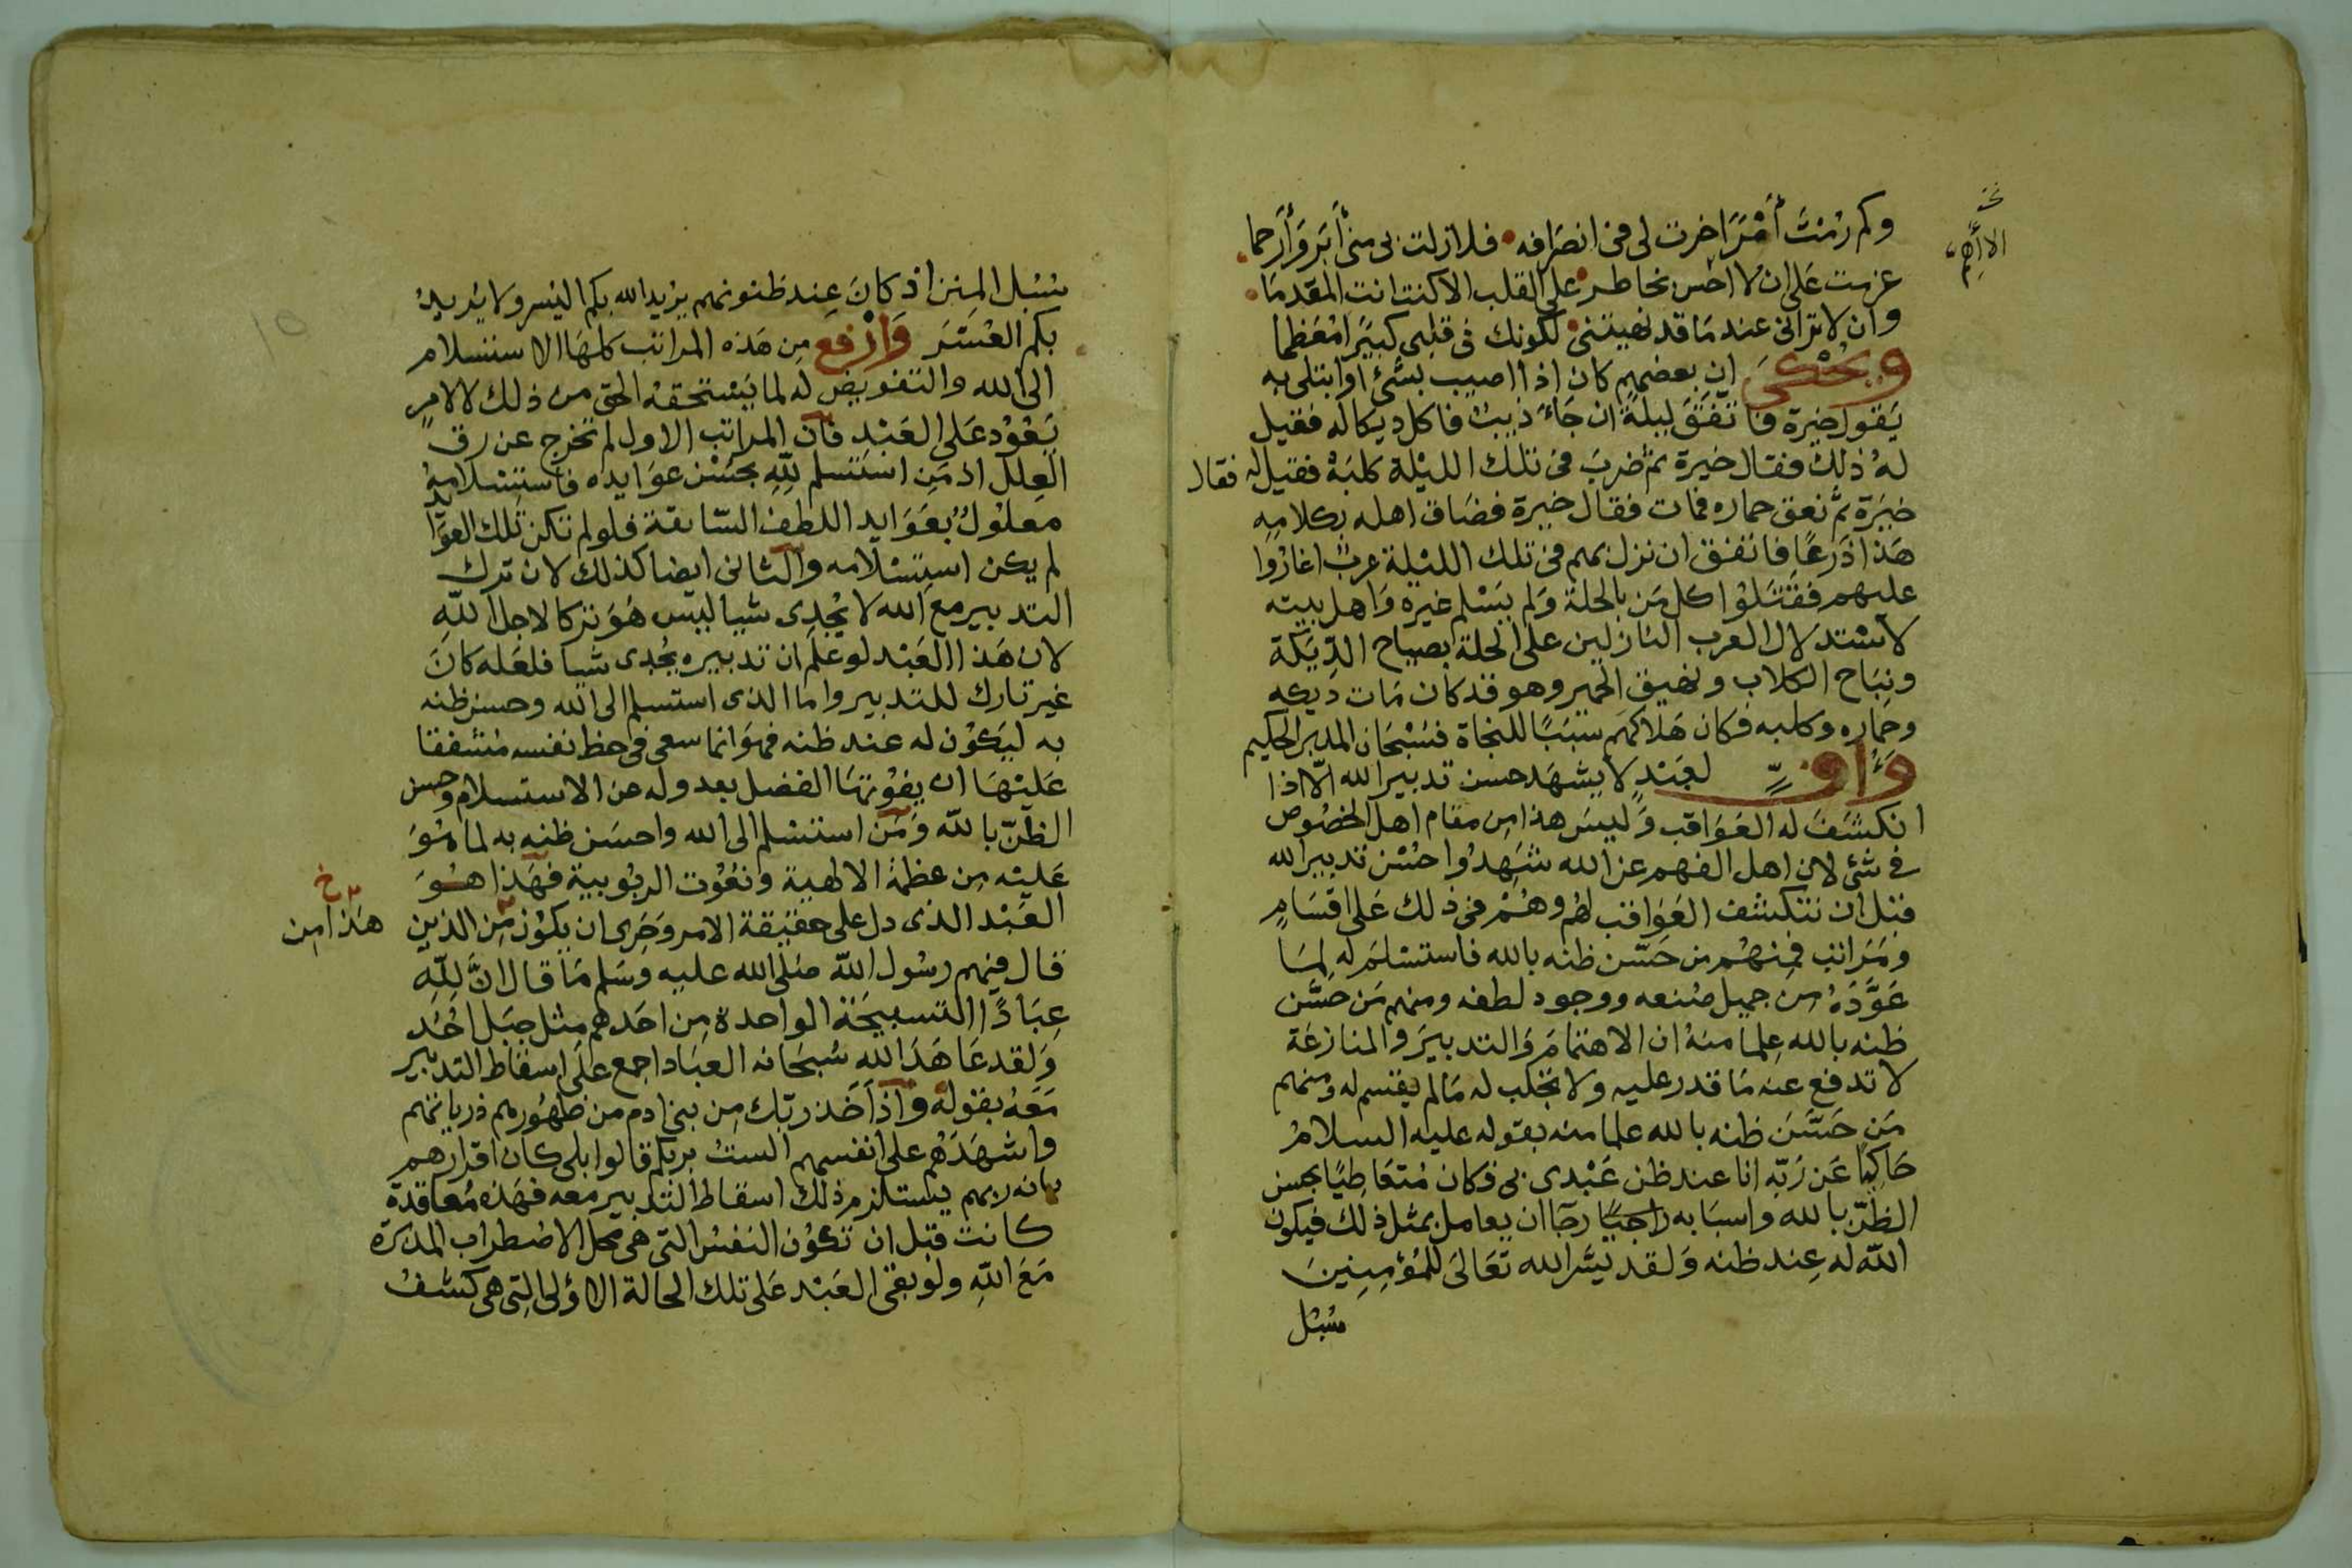 وكم رُمْتَ أَمْرًا خرت لى فى انصَرافه • فلا زلت بى منى أَبَر وَأَرحما •
عزمت عَلى ان لا احُس بخاطر • على القلب الا كنت انت المقدمَا •
وان لا ترانى عند مَا قد نهيتنى • لكونك فى قلبى كبيرًا مُعَظما
ويُحْكى ان بعضهم كان اذا اصيب بشئ اوابتلى به
يَقول خيرة فاتفَقَ ليلةً ان جَاءَ ذيب فاكل ديكا له فقيل
لهُ ذلك فقال خيرة ثم ضربَ فى تلك الليْلة كلبَهُ فقيل له فقال
خيَرَة ثم نهق حماره فمات فقال خيرة فضَاق اهله بكلامِهِ
هَذا ذَرعًا فاتفق ان نزل بهم فى تلك الليْلة عربٌ اغارُوا
عليهم فقتَلوْا كل مَن بالحلة وَلم يَسْلم غيرهُ وَاهل بيته
لاسْتدلال العرب النازلين على الحلة بصياح الدِّيَكَة
ونبَاح الكلاب ونهيق الحمير وهو قد كان مَات ديكه
وحمَاره وكلبه فكان هَلاكهَم سَبَبًا للنجاة فسُبْحَان المدبر الحكيم
لعَبْدٍ لا يشهَد حسن تدبير الله الّا اذا
انكشَفَ له العَوَاقب وَليسَ هذا مِن مقام اهل الخصُوص
فى شئ لان اهل الفهم عن الله شَهِدُوا حُسْن تدبير الله
قبْل ان تنكشف العَوَاقب لهم وهُمْ فى ذلك عَلى اقسَامٍ
ومَرَاتب فمِنهُم من حَسَّن ظنه بالله فاستسْلمَ له لِمَا
عَوَّدَهُ من جميل صُنعه ووجود لطفه ومنهم مَن حسَّن
ظنه بالله عِلما منهُ ان الاهتمامَ وَالتدبيرَ والمنازعَة
لا تدفع عنه مَا قدر عليه ولا تجلب له مَالم يقسم له ومنهم
مَن حَسَّنَ ظنه بالله علما منه بقوله عليه السلامُ
حَاكيًا عَن رَبّهِ انا عند ظن عَبْدى بى فكان مُتعَاطيًا بحسن
الظنّ بالله واسبَابه راجيًا رجَا ان يعامل بمثل ذلك فيكون
اللّه له عِند ظنه وَلقد يسَّر الله تعَالىَ للمُؤمِنِينَ
سُبْل
الاأَهِم
سُبْل المِنن اذ كانَ عِند ظنونهم يُرِيد الله بكم اليُسر ولا يُريدُ
بكم العُسْرَ وَارْفع مِن هَذه المراتب كلهَا الاستسلام
الى الله والتفويض له لما يَسْتحقهُ الحق من ذلك لا لامرٍ
يَعُوْد عَلى العَبْدِ فان المراتب الاول لم تخرج عن رق
العِلل اذ مَن استسلم لِلّهِ بحسْن عوَايده فاستِسْلامهُ
معلوْلٌ بعَوَايد اللطف السَّابقة فلو لم تكن تلك العوَايد
لم يكن استِسْلامه والثانى ايضا كذلك لان ترك
التدبير مع الله لا يُجْدِى شيا ليسَ هُوَ تركا لاجل اللّهِ
لان هَذا العَبْد لو علم ان تدبيره يُجدى شيا فلعَله كانَ
غير تارك للتدبير واما الذى استسلم الى الله وحسن ظنه
به ليَكوُن له عند ظنه فهوَ انما سعى فى حظ نفسه مُشفقا
عَليْهَا ان يفوُتهَا الفضل بعدوله عن الاستسلام وحسن
الظنّ بالله وَمَن استسْلم الى الله واحسَن ظنه به لما هُوَ
عَليْه مِن عظمةِ الالهية ونعُوْت الربُوبية فهَذا هُوَ
العَبْد الذى دل على حقيقة الامر وَحَرِى ان يكوُن مِن الذين
هَذا مِن خ
قال فيهم رسُول اللّه صَلى الله عليه وسَلم مَا قال انَّ لِلّهِ
عِبَادًا التسبيحَة الواحدة مِن احَدهم مِثل جبَل اُحُد
وَلقد عَاهَدَ الله سُبحَانه العبَاد اجمع عَلى اسقاط التدبير
مَعَهُ بقوله وَاذ اَخَذ ربّك مِن بنى ادم من ظهُورهم ذرياتهم
وَاشهَدَهُم على انفسِهم الستُ بربكم قالوا بلى كان اقرارهم
بانه ربهم يستلزم ذلك اسقاط التدبير معه فهَذه مُعَاقدة
كانت قبْل ان تكوُن النفسُ التى هى محل الاضطراب المدبرة
مَعَ اللّهِ ولوْ بقى العَبْد عَلى تلك الحالة الاوْلى التِى هى كشفُ